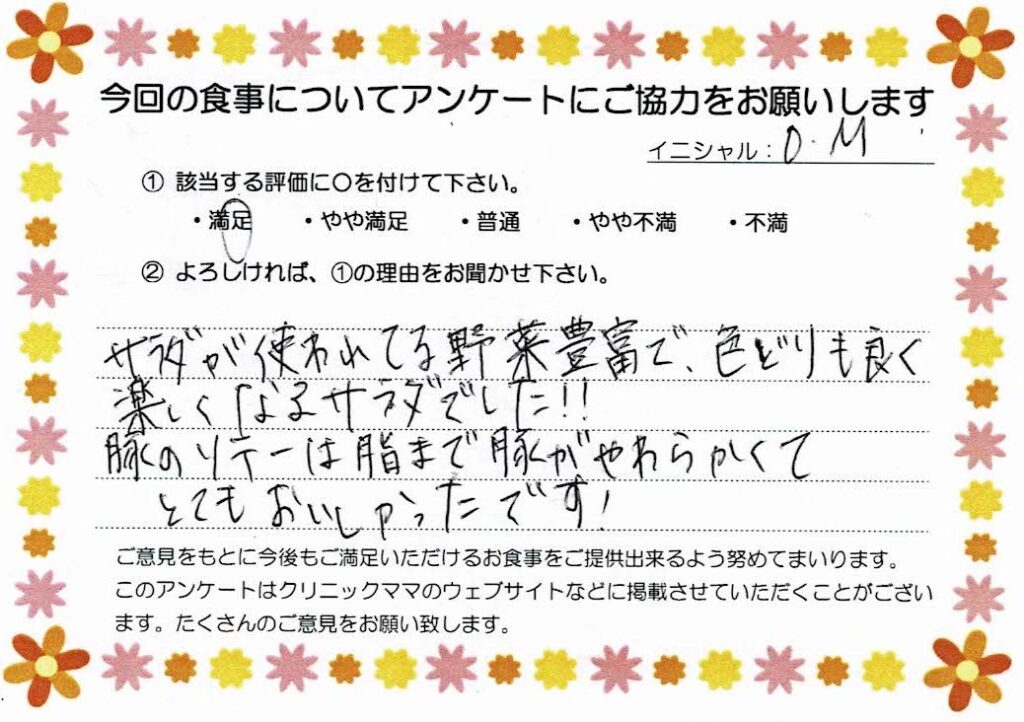 今回の食事についてアンケートにご協力をお願いします
イニシャル：O.M
① 該当する評価に〇を付けて下さい。
・満足 ・やや満足 ・普通 ・やや不満 ・不満
② よろしければ、①の理由をお聞かせ下さい。
サラダが使われてる野菜豊富で、色どりも良く
楽しくなるサラダでした!!
豚のソテーは脂まで豚がやわらかくて
とてもおいしかったです!
ご意見をもとに今後もご満足いただけるお食事をご提供出来るよう努めてまいります。
このアンケートはクリニックママのウェブサイトなどに掲載させていただくことがござい
ます。たくさんのご意見をお願い致します。